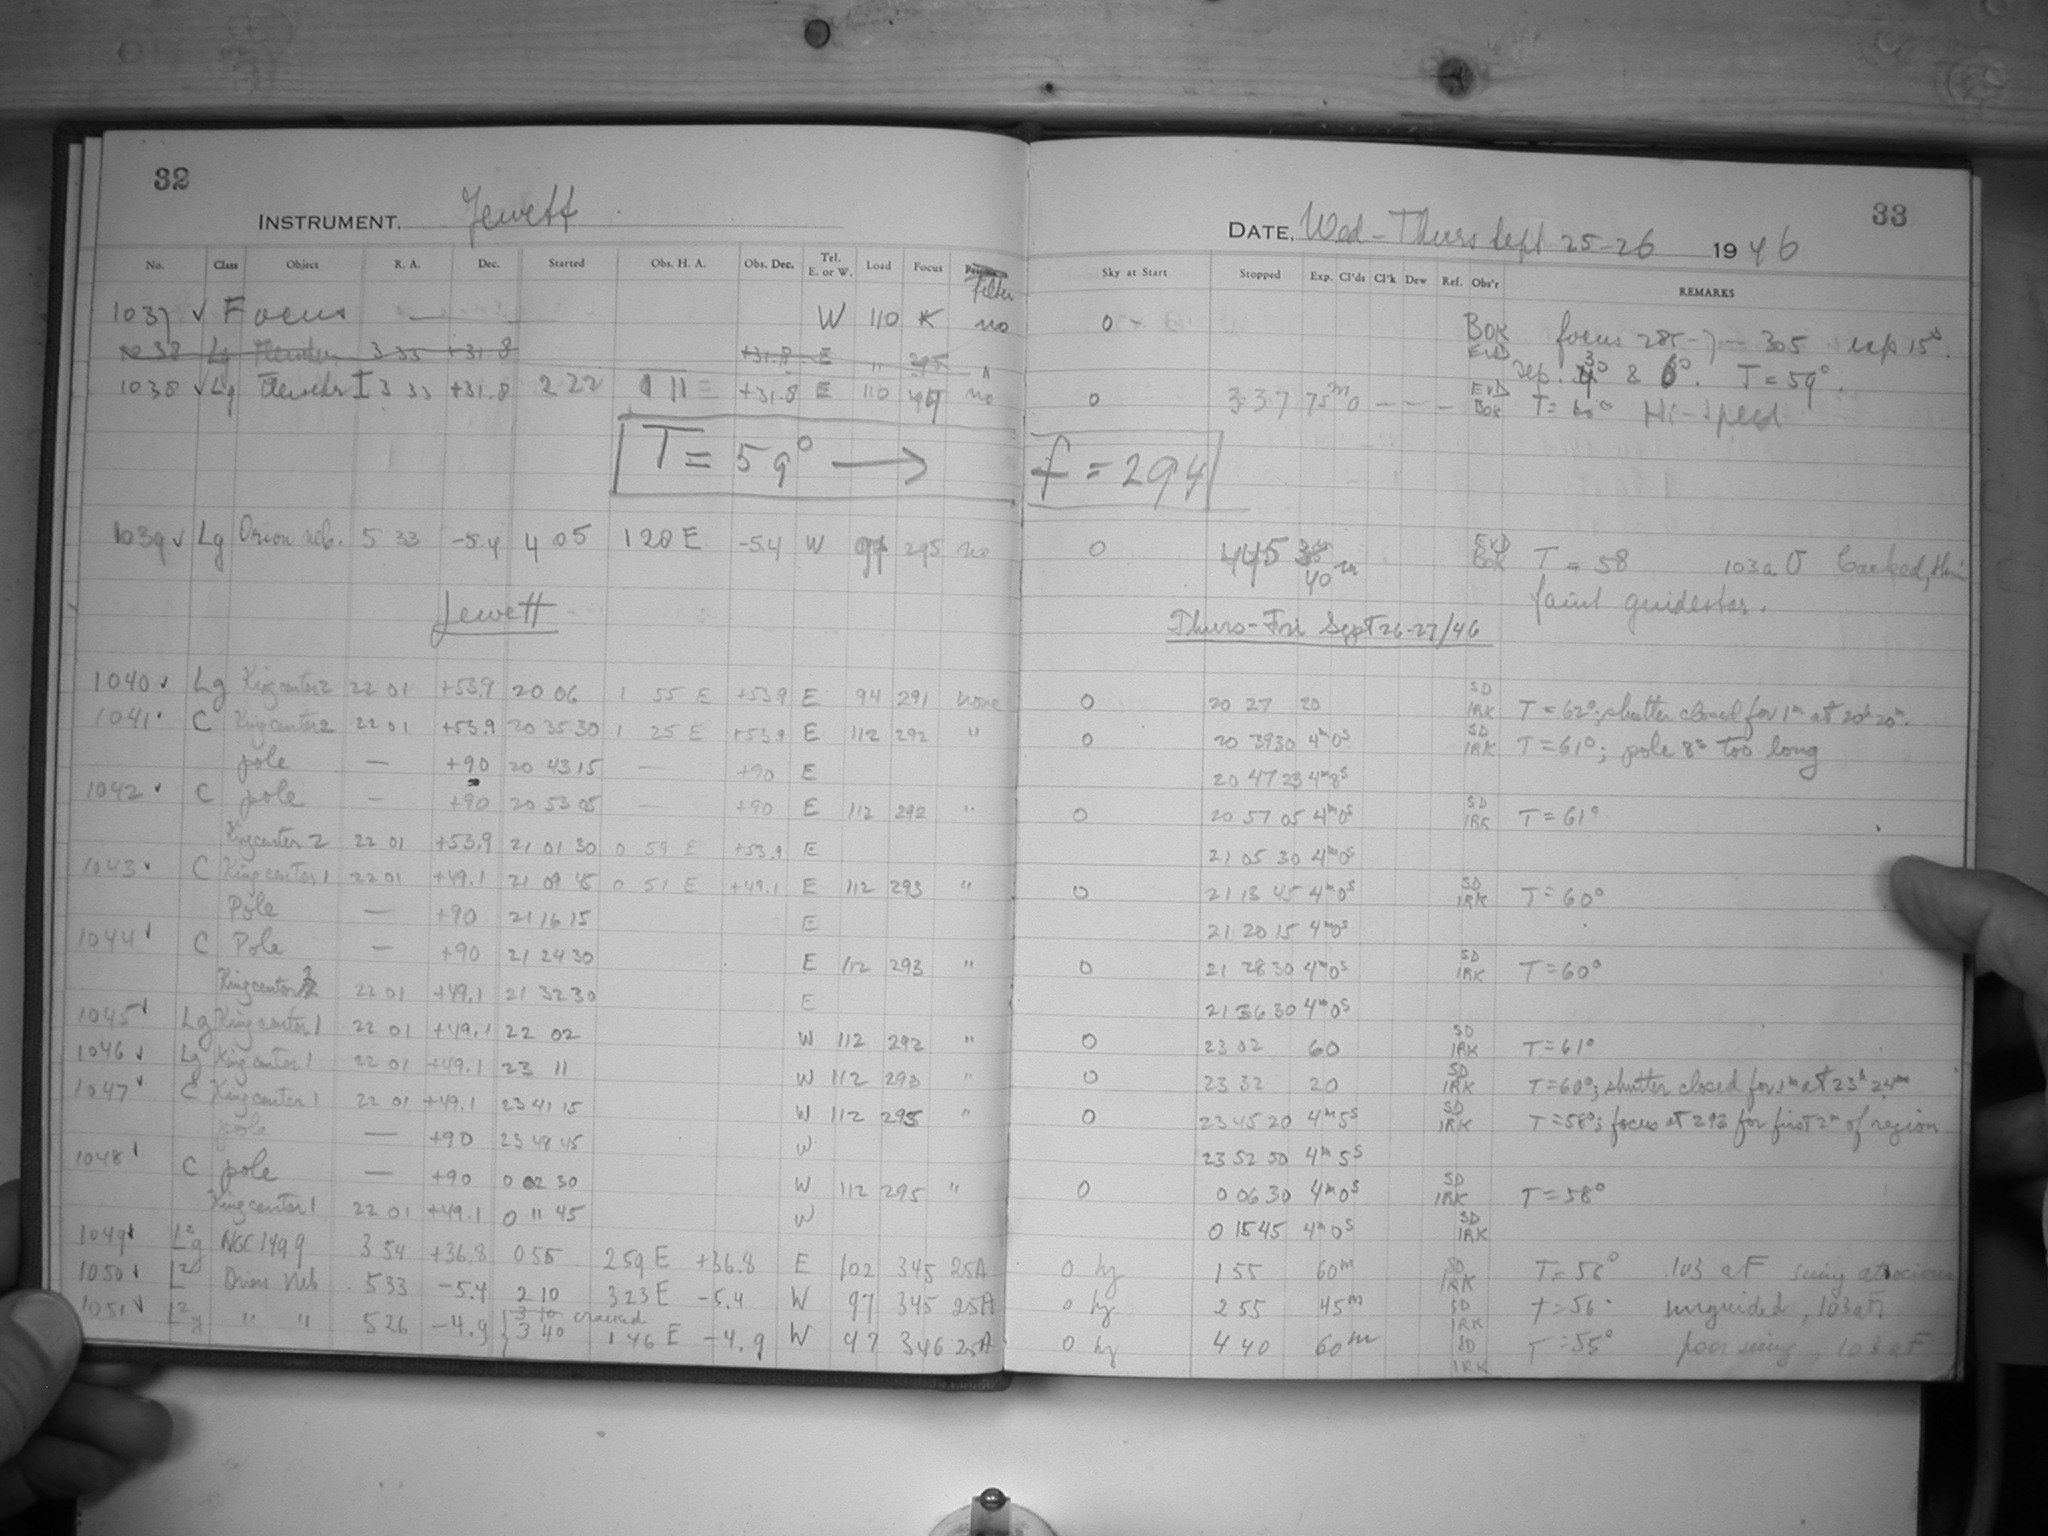 32
INSTRUMENT, Jewett
No. Class Object R. A. Dec. Started Obs. H. A. Obs. Dec. Tel. E. or W. Load Focus Filter
1037 ✓ Focus — W 110 K no
1038 Lg 3 33 +31.8 +31.8 E " 295
1038 ✓ Lg I 3 33 +31.8 2 22 1 11 E +31.8 E 110 no
T = 59° →
1039 ✓ Lg Orion neb. 5 33 -5.4 4 05 1 28 E -5.4 W 97 295 no
Jewett
1040 ✓ Lg King center 2 22 01 +53.9 20 06 1 55 E +53.9 E 94 291 none
1041 C King center 2 22 01 +53.9 20 35 30 1 25 E +53.9 E 112 292 "
pole — +90 20 43 15 — +90 E
1042 ✓ C pole — +90 20 53 05 — +90 E 112 292 "
King center 2 22 01 +53.9 21 01 30 0 59 E +53.9 E
1043 ✓ C King center 1 22 01 +49.1 21 09 45 0 51 E +49.1 E 112 293 "
Pole — +90 21 16 15 E
1044 ✓ C Pole — +90 21 24 30 E 112 293 "
King center 22 01 +49.1 21 32 30 E
1045 ✓ Lg King center 1 22 01 +49.1 22 02 W 112 292 "
1046 ✓ Lg King center 1 22 01 +49.1 23 11 W 112 293 "
1047 ✓ C King center 1 22 01 +49.1 23 41 15 W 112 295 "
pole — +90 23 48 45 W
1048 ✓ C pole — +90 0 02 30 W 112 295 "
King center 1 22 01 +49.1 0 11 45 W
1049 ✓ L²g NGC 1499 3 54 +36.8 0 55 2 59 E +36.8 E 102 345 25A
1050 ✓ L² Orion Neb 5 33 -5.4 2 10 3 23 E -5.4 W 97 345 25A
3 10 cracked
1051 ✓ L²g " " 5 26 -4.9 3 40 1 46 E -4.9 W 97 346 25A
33
DATE, Wed-Thurs Sept 25-26 1946
Sky at Start Stopped Exp. Cl'ds Cl'k Dew Ref. Obs'r REMARKS
0 BOK EVD focus 285 - 7 - 305 exp 15s.
Sep. & T = 59°.
0 3 37 75m 0 — — — EVD BOK T = Hi-Speed
f = 294
0 4 45 40 m EVD BOK T = 58 103a O backed, thin
faint guidestar.
Thurs-Fri Sept 26-27/46
0 20 27 20 SD IRK T = 62°; shutter closed for 1m at 20h 20m.
0 20 39 30 4m0s SD IRK T = 61°; pole 8s too long
20 47 23 4m8s
0 20 57 05 4m0s SD IRK T = 61°
21 05 30 4m0s
0 21 13 45 4m0s SD IRK T = 60°
21 20 15 4m0s
0 21 28 30 4m0s SD IRK T = 60°
21 36 30 4m0s
0 23 02 60 SD IRK T = 61°
0 23 32 20 SD IRK T = 60°; shutter closed for 1m at 23h 24m
0 23 45 20 4m5s SD IRK T = 58°; focus at 293 for first 2m of region
23 52 50 4m5s
0 0 06 30 4m0s SD IRK T = 58°
0 15 45 4m0s SD IRK
0 hy 1 55 60m SD IRK T = 56° 103 aF seeing atrocious
0 hy 2 55 45m SD IRK T = 56° unguided, 103aF
0 hy 4 40 60m SD IRK T = 55° poor seeing, 103 aF